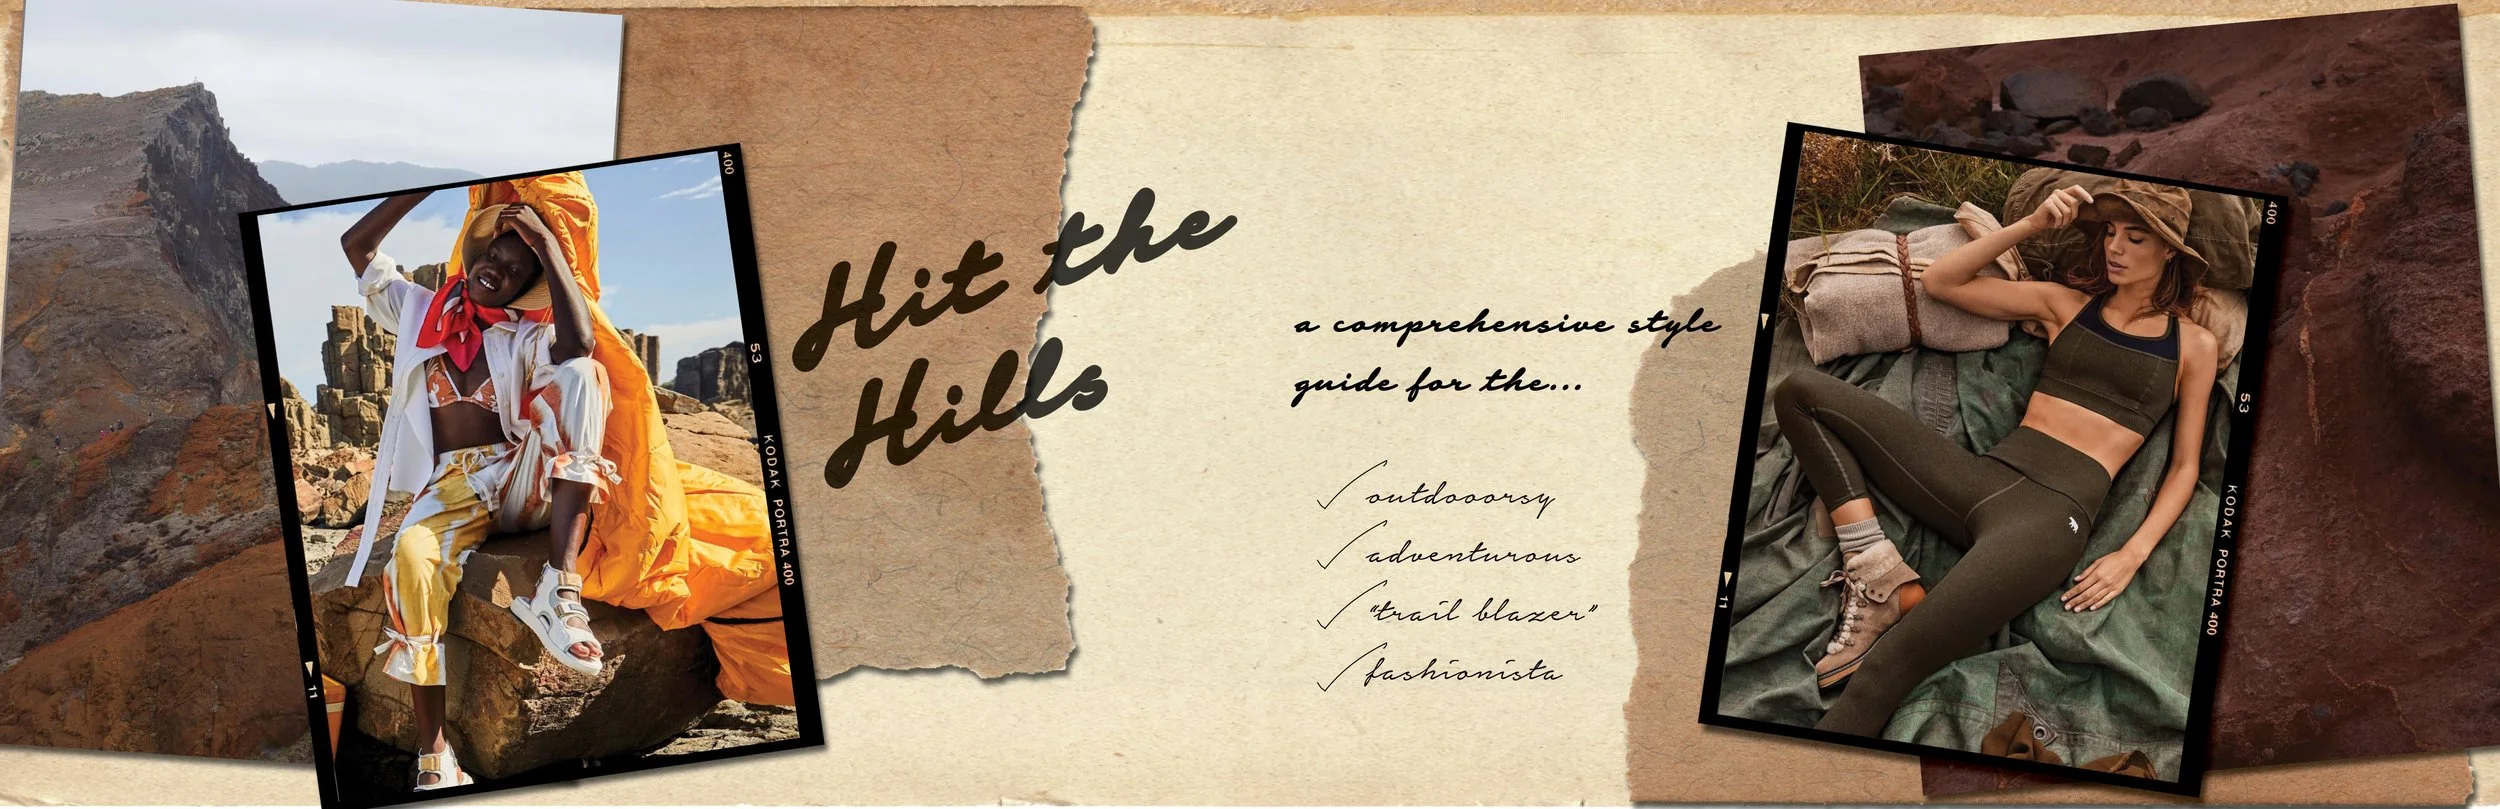 Hit the
Hills
a comprehensive style
guide for the...
outdooorsy
adventurous
"trail blazer"
fashionista
400
53
KODAK PORTRA 400
11
400
53
KODAK PORTRA 400
11